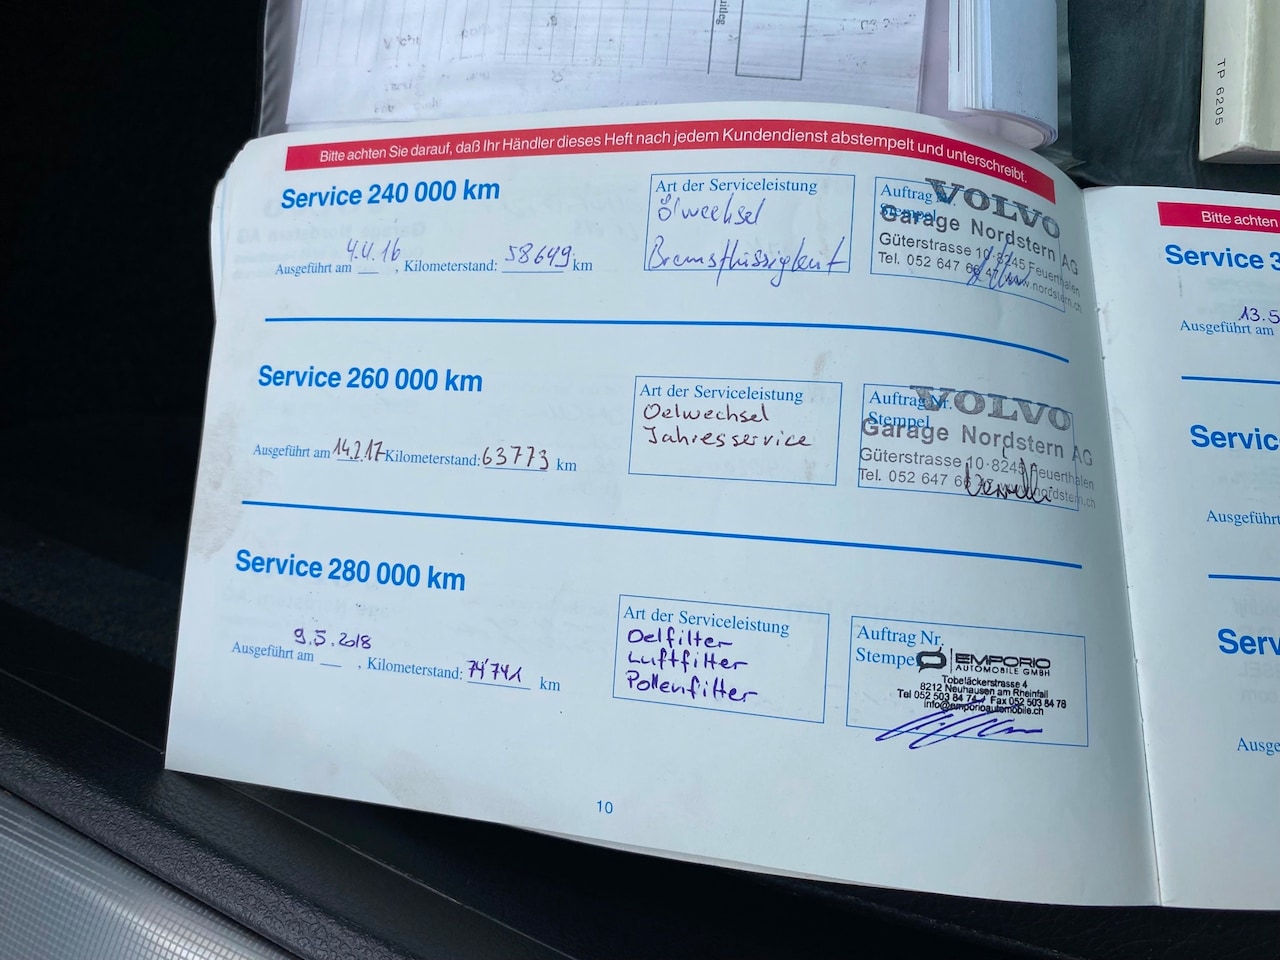 TP 6205
Bitte achten Sie darauf, daß Ihr Händler dieses Heft nach jedem Kundendienst abstempelt und unterschreibt.
Service 240 000 km
Ausgeführt am 4.4.16 , Kilometerstand: 58649 km
Art der Serviceleistung
Ölwechsel
Bremsflüssigkeit
Auftrag Nr.
Stempel
VOLVO
Garage Nordstern AG
Güterstrasse 10·8245 Feuerthalen
Tel. 052 647 66 47 www.nordstern.ch
Service 260 000 km
Ausgeführt am 14.2.17 Kilometerstand: 63773 km
Art der Serviceleistung
Oelwechsel
Jahresservice
Auftrag Nr.
Stempel
VOLVO
Garage Nordstern AG
Güterstrasse 10·8245 Feuerthalen
Tel. 052 647 66 47 www.nordstern.ch
Service 280 000 km
Ausgeführt am 9.5.2018 , Kilometerstand: 74'741 km
Art der Serviceleistung
Oelfilter
Luftfilter
Pollenfilter
Auftrag Nr.
Stempel
EMPORIO
AUTOMOBILE GMBH
Tobeläckerstrasse 4
8212 Neuhausen am Rheinfall
Tel 052 503 84 74 Fax 052 503 84 78
info@emporioautomobile.ch
10
Bitte achten
Service 3
13.5
Ausgeführt am
Servic
Ausgeführt
Serv
Ausge